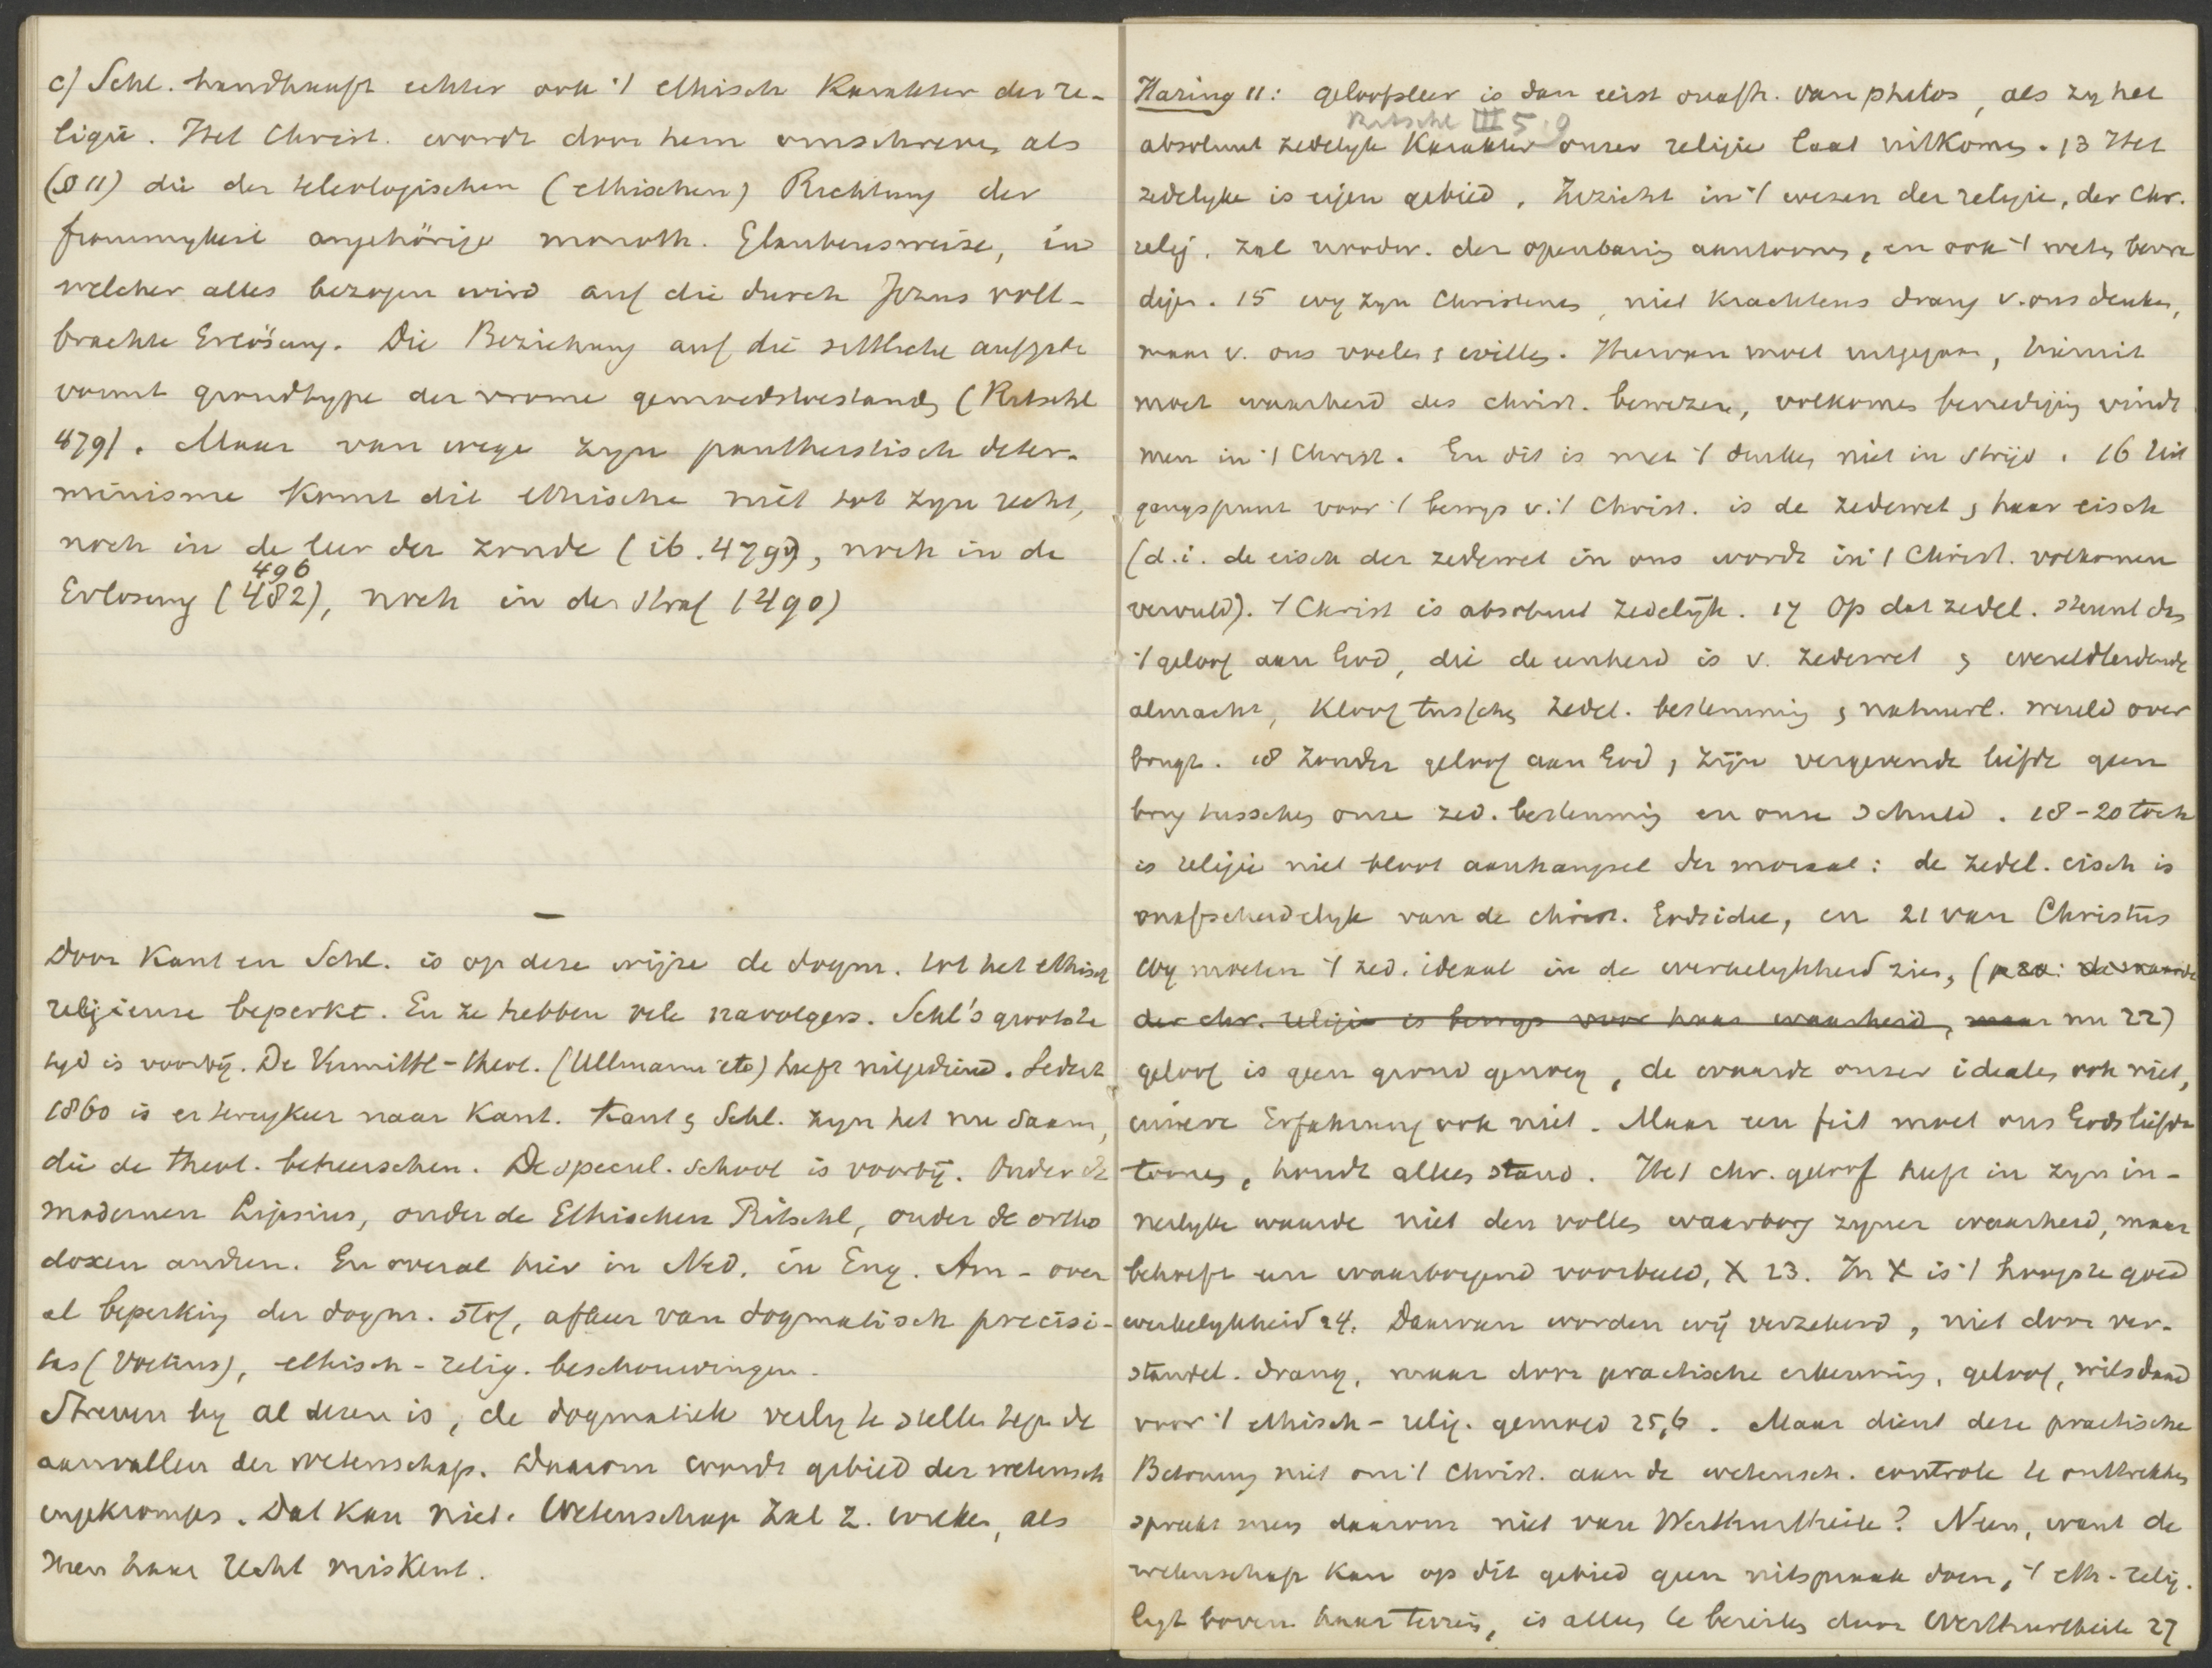 c) Schl. handhaaft echter ook 't ethisch Karakter der re-
ligie. Het Christ. wordt door hem omschreven als
(§ 11) die der teleologischen (ethischen) Richtung der
frommigkeit angehörige monoth. Glaubensweise, in
welcher alles bezogen wird auf die durch Jezus voll-
brachte Erlösung. Die Beziehung auf die sittliche aufgabe
vormt grondtype der vrome gemoedstoestanden (Ritschl
479). Maar van wege zyn pantheistisch deter-
minisme komt dit ethische niet tot zyn recht,
noch in de leer der zonde (ib. 479), noch in de
496
Erlosung (482), noch in der straf (490)
—
Door Kant en Schl. is op deze wijze de dogm. tot het ethisch
religieuse beperkt. En ze hebben vele navolgers. Schl's grootste
tyd is voorbij. De Vermittl-theol. (Ullmann etc) heeft uitgediend. Sedert
1860 is er terugkeer naar Kant. Kant & Schl. zyn het nu saam,
die de theol. beheerschen. De specul. school is voorbij. Onder de
modernen Lipsius, onder de Ethischen Ritschl, onder de ortho
doxen andren. En overal hier in Ned. in Eng. Am - over
al beperking der dogm. stof, afkeer van dogmatisch precisi-
tas (Voetius), ethisch-relig. beschouwingen.
Streven by al dezen is, de dogmatiek veilig te stellen tegen de
aanvallen der wetenschap. Daarom wordt gebied der wetensch
ingekrompen. Dat kan niet. Wetenschap zal z. wreken, als
men haar recht miskent.
Haring 11: geloofsleer is dan eerst onafh. van philos, als zy het
Ritschl III 5.9
absoluut zedelyk Karakter onzer religie laat uitkomen. 13 Het
zedelyke is eigen gebied. Inzicht in 't wezen der religie, der Chr.
relig. zal noodw. der openbaring aantoonen, en ook 't weten bevre
digen. 15 wy zyn Christenen, niet krachtens drang v. ons denken,
maar v. ons voelen & willen. Hiervan moet uitgegaan, hieruit
moet waarheid des christ. bewezen, volkomen bevrediging vindt
men in 't Christ. En dit is met 't denken niet in strijd. 16 Uit
gangspunt voor 't bewys v. 't Christ. is de zedewet & haar eisch
(d.i. de eisch der zedewet in ons wordt in 't Christ. volkomen
vervuld). 't Christ is absoluut zedelijk. 17 Op dat zedel. steunt dan
't geloof aan God, die de eenheid is v. zedewet & wereldleidende
almacht, Kloof tusschen zedel. bestemming & natuurl. wereld over
brugt. 18 Zonder geloof aan God & zijn vergevende liefde geen
brug tusschen onze zed. bestemming en onze schuld. 18-20 toch
is religie niet bloot aanhangsel der moraal: de zedel. eisch is
onafscheidelyk van de christ. Godsidee, en 21 van Christus
Wy moeten 't zed. ideaal in de werkelykheid zien, (
der chr. religie is bewys voor haar waarheid, maar nu 22)
geloof is geen grond genoeg, de waarde onzer idealen ook niet,
innere Erfahrung ook niet. Maar een feit moet ons Gods liefde
toonen, houdt alles stand. Het chr. geloof heeft in zyn in-
nerlyke waarde niet den vollen waarborg zyner waarheid, maar
behoeft een waarborgend voorbeeld, X 23. In X is 't hoogste goed
werkelykheid 24. Daarvan worden wij verzekerd, niet door ver-
standel. drang, maar door practische erkenning, geloof, wilsdaad
voor 't ethisch-relig. gemoed 25,6. Maar dient deze practische
Betonung niet om 't Christ. aan de wetensch. controle te onttrekken
spreekt men daarom niet van Werthurtheile? Neen, want de
wetenschap kan op dit gebied geen uitspraak doen, 't eth-relig.
ligt boven haar terrein, is alleen te bereiken door Werthurtheile 27